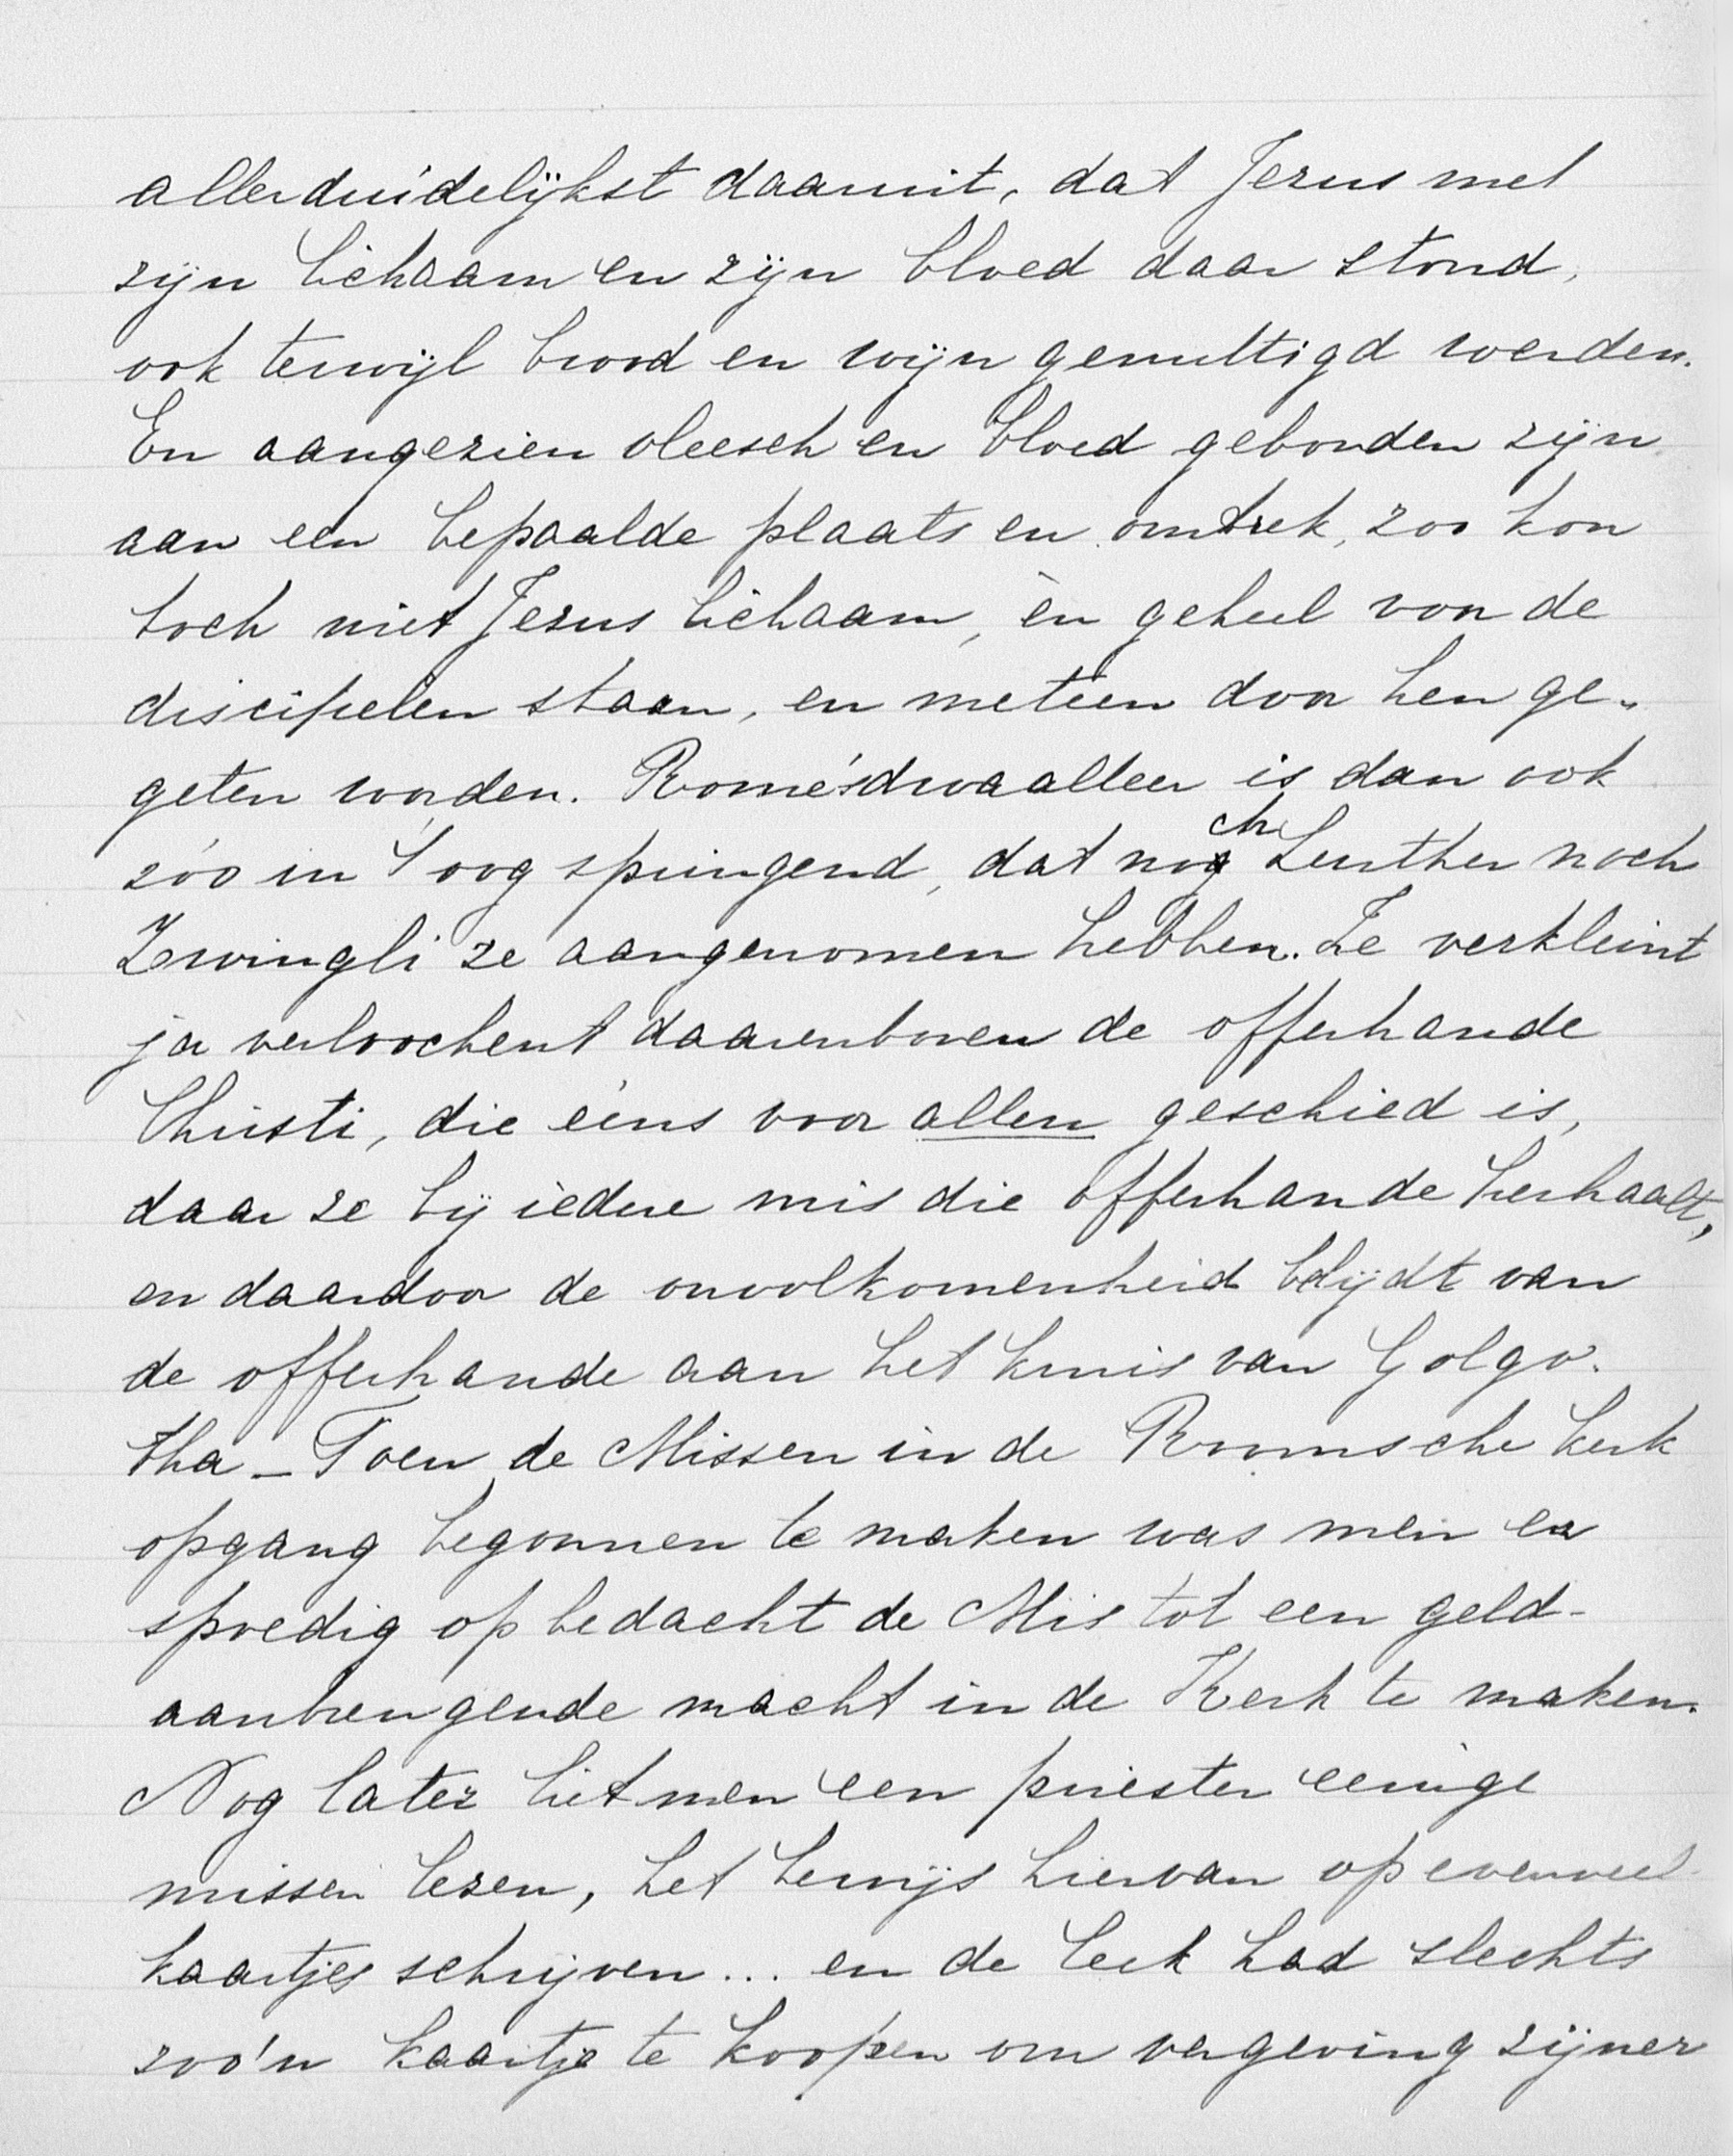 allerduidelijkst daaruit, dat Jezus met
zijn lichaam en zijn bloed daar stond,
ook terwijl brood en wijn genuttigd werden.
En aangezien vleesch en bloed gebonden zijn
aan een bepaalde plaats en omtrek, zoo kon
toch niet Jezus lichaam, èn geheel voor de
discipelen staan, en meteen door hen ge-
geten worden. Rome's dwaalleer is dan ook
zóó in 't oog springend, dat noch Luther noch
Zwingli ze aangenomen hebben. Ze verkleint
ja verloochent daarenboven de offerhande
Christi, die ééns voor allen geschied is,
daar ze bij iedere mis die offerhande herhaalt,
en daardoor de onvolkomenheid belijdt van
de offerhande aan het kruis van Golgo-
tha – Toen de Missen in de Roomsche kerk
opgang begonnen te maken was men er
spoedig op bedacht de Mis tot een geld-
aanbrengende macht in de Kerk te maken.
Nog later liet men een priester eenige
missen lezen, het bewijs hiervan op evenveel
kaartjes schrijven... en de leek had slechts
zoo'n kaartje te koopen om vergeving zijner